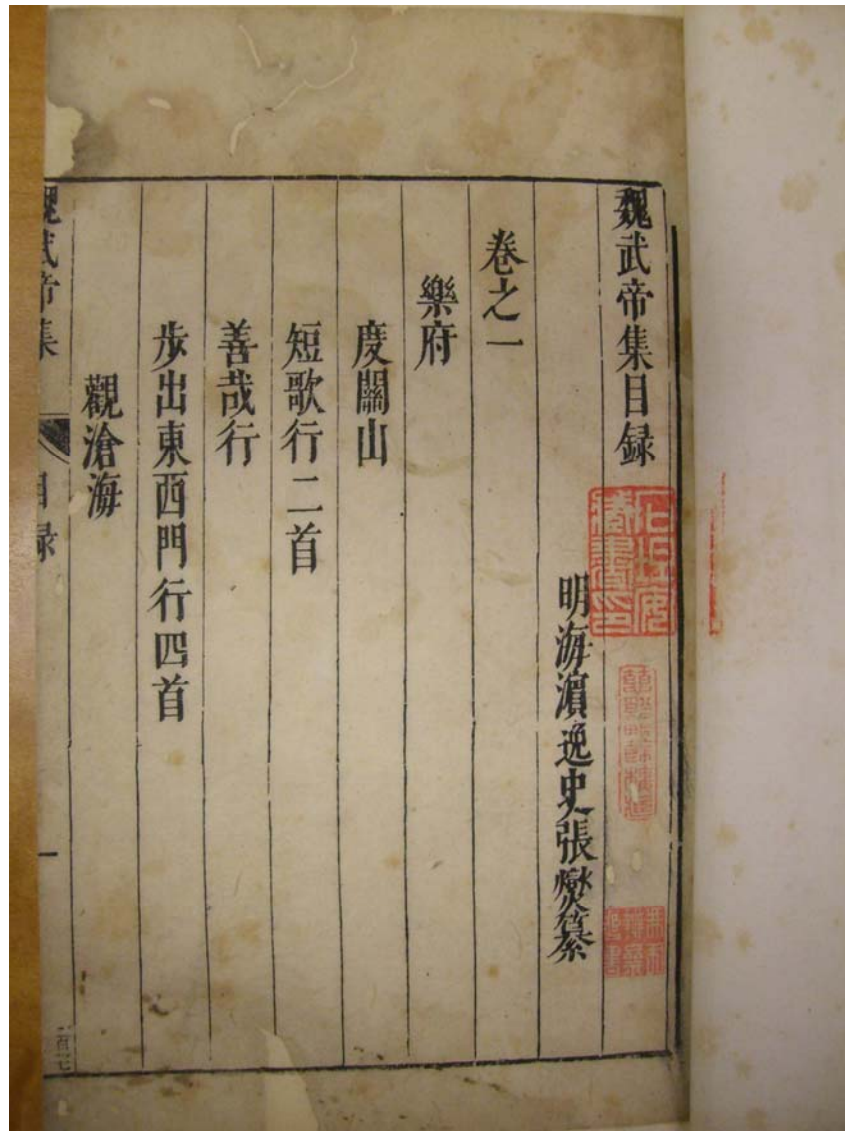 魏武帝集目録
明海濵逸史張燮纂
卷之一
樂府
度關山
短歌行二首
善哉行
步出東西門行四首
觀滄海
魏武帝集
目録
一